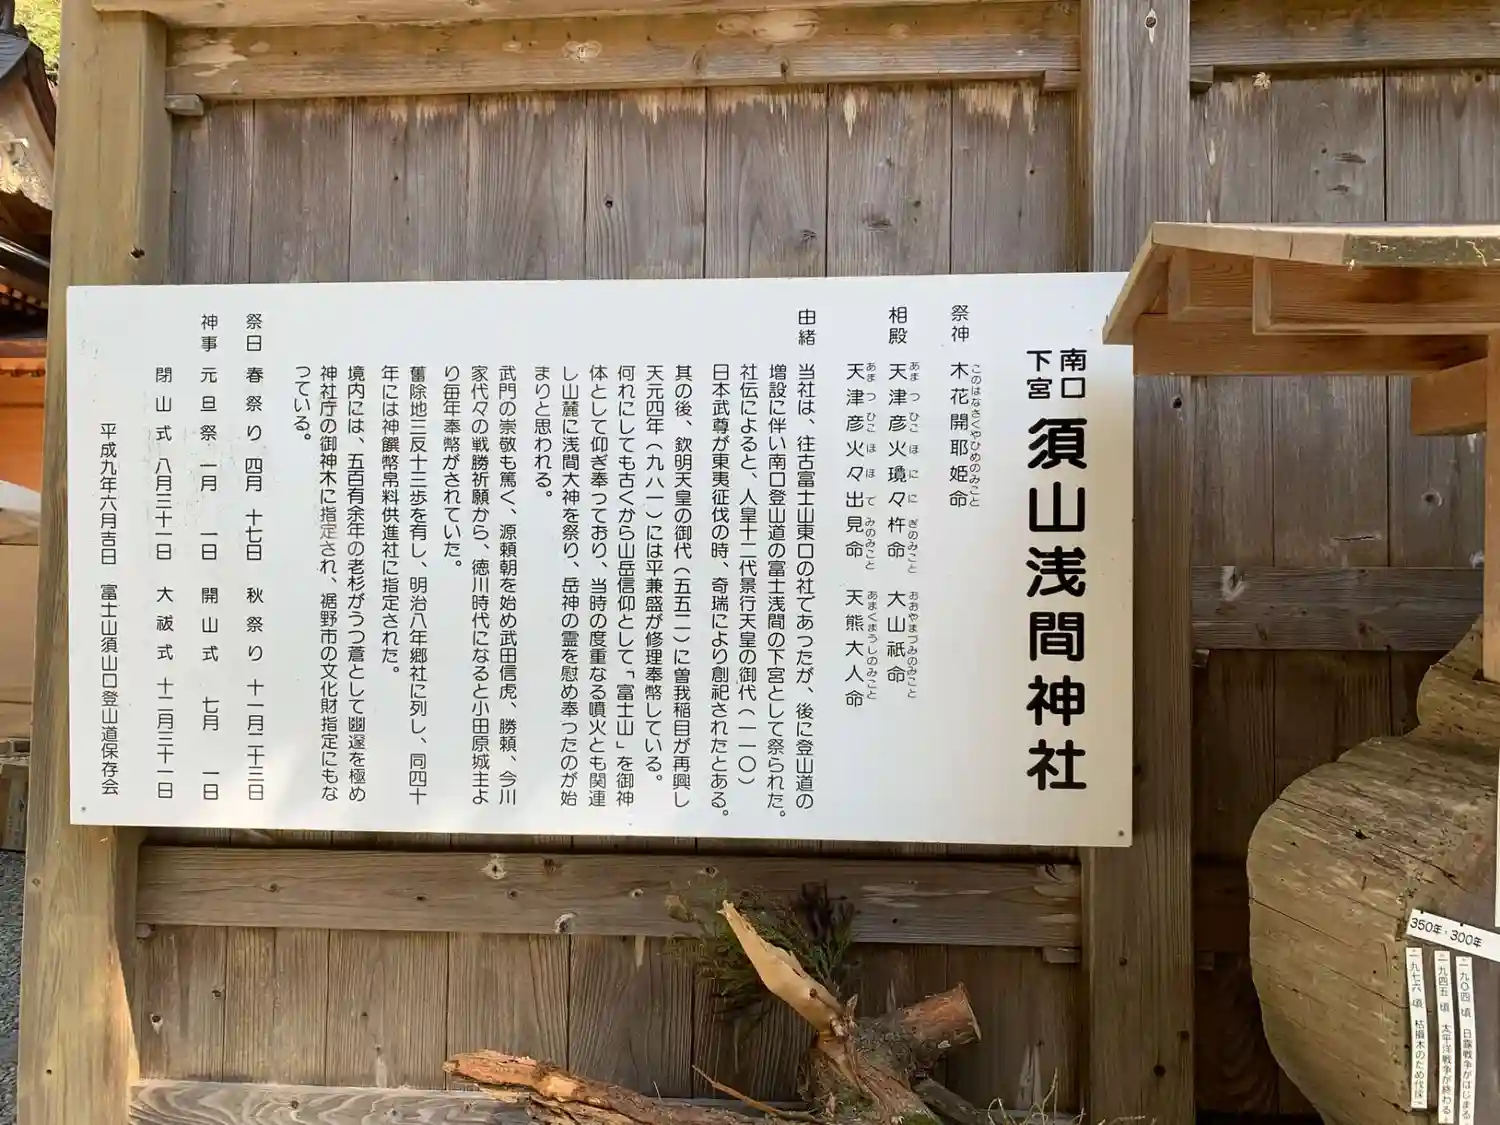 南口
下宮
須山浅間神社
祭神 木花開耶姫命
このはなさくやひめのみこと
相殿 天津彦火瓊々杵命 大山祇命
あまつひこほににぎのみこと おおやまづみのみこと
天津彦火々出見命 天熊大人命
あまつひこほほでみのみこと あまくまうしのみこと
由緒 当社は、往古富士山東口の社であったが、後に登山道の
増設に伴い南口登山道の富士浅間の下宮として祭られた。
社伝によると、人皇十二代景行天皇の御代(一一〇)
日本武尊が東夷征伐の時、奇瑞により創祀されたとある。
其の後、欽明天皇の御代(五五二)に曽我稲目が再興し
天元四年(九八一)には平兼盛が修理奉幣している。
何れにしても古くから山岳信仰として「富士山」を御神
体として仰ぎ奉っており、当時の度重なる噴火とも関連
し山麓に浅間大神を祭り、岳神の霊を慰め奉ったのが始
まりと思われる。
武門の崇敬も篤く、源頼朝を始め武田信虎、勝頼、今川
家代々の戦勝祈願から、徳川時代になると小田原城主よ
り毎年奉幣がされていた。
舊除地三反十三歩を有し、明治八年郷社に列し、同四十
年には神饌幣帛料供進社に指定された。
境内には、五百有余年の老杉がうつ蒼として幽邃を極め
神社庁の御神木に指定され、裾野市の文化財指定にもな
っている。
祭日 春祭り 四月 十七日 秋祭り 十一月二十三日
神事 元旦祭 一月 一日 開山式 七月 一日
閉山式 八月三十一日 大祓式 十二月三十一日
平成九年六月吉日 富士山須山口登山道保存会
350年・300年
一九〇四頃 日露戦争がはじまる
一九四五頃 太平洋戦争が終わる
一九七六頃 枯損木のため伐採